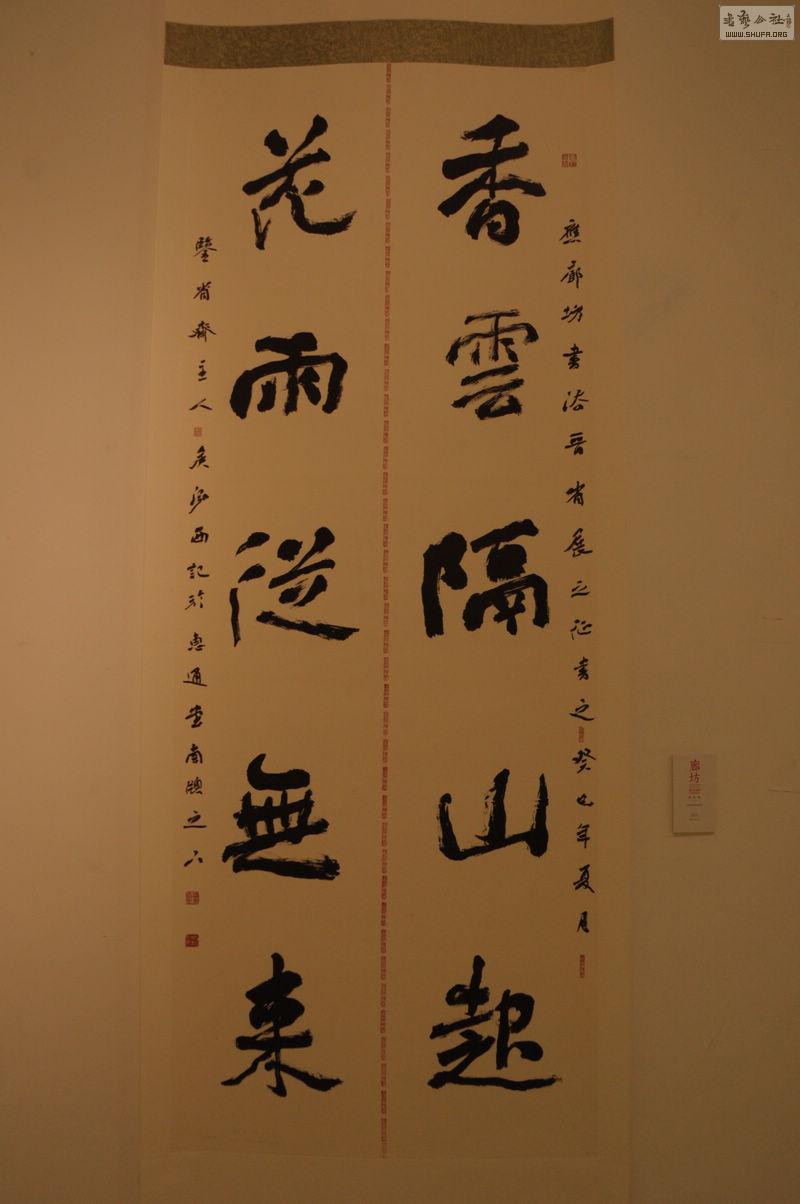 書藝公社
WWW.SHUFA.ORG
應廊坊書法晉省展之征書之癸巳年夏月
香雲隔山起
花雨從無来
鑒省齋主人侯西記於惠通堂南牕之下
廊坊